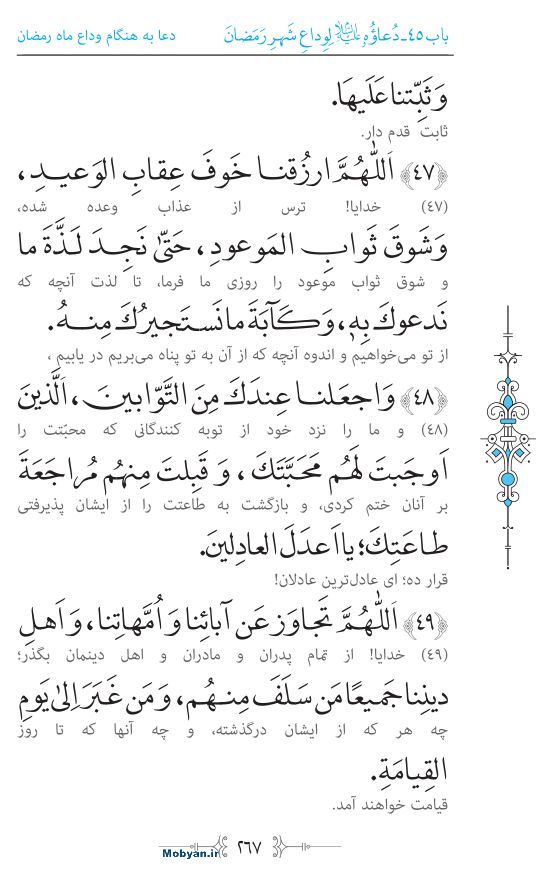 باب ٤٥- دُعاؤُهُ عليه‌السلام لِوِداعِ شَهرِ رَمَضانَ دعا به هنگام وداع ماه رمضان
وَ ثَبِّتنا عَلَيها.
ثابت قدم دار.
﴿٤٧﴾ اَللّٰهُمَّ ارزُقنا خَوفَ عِقابِ الوَعيدِ،
(٤٧) خدایا! ترس از عذاب وعده شده،
وَ شَوقَ ثَوابِ المَوعودِ، حَتّىٰ نَجِدَ لَذَّةَ ما
و شوق ثواب موعود را روزی ما فرما، تا لذت آنچه که
نَدعوكَ بِهٖ، وَ كَآبَةَ ما نَستَجيرُكَ مِنهُ.
از تو می‌خواهیم و اندوه آنچه که از آن به تو پناه می‌بریم در یابیم ،
﴿٤٨﴾ وَ اجعَلنا عِندَكَ مِنَ التَّوّابينَ، اَلَّذينَ
(٤٨) و ما را نزد خود از توبه کنندگانی که محبّتت را
اَوجَبتَ لَهُم مَحَبَّتَكَ، وَ قَبِلتَ مِنهُم مُراجَعَةَ
بر آنان ختم کردی، و بازگشت به طاعتت را از ایشان پذیرفتی
طاعَتِكَ؛ يا اَعدَلَ العادِلينَ.
قرار ده؛ ای عادل‌ترین عادلان!
﴿٤٩﴾ اَللّٰهُمَّ تَجاوَز عَن آبائِنا وَ اُمَّهاتِنا، وَ اَهلِ
(٤٩) خدایا! از تمام پدران و مادران و اهل دینمان بگذر؛
دينِنا جَميعًا مَن سَلَفَ مِنهُم، وَ مَن غَبَرَ اِلىٰ يَومِ
چه هر که از ایشان درگذشته، و چه آنها که تا روز
القِيامَةِ.
قیامت خواهند آمد.
٢٦٧
Mobyan.ir